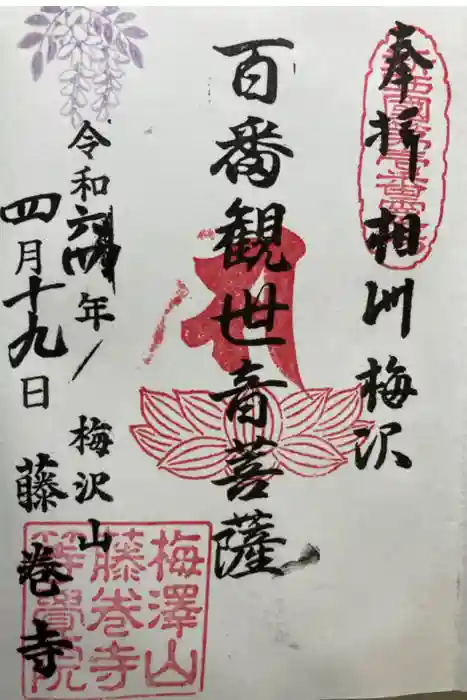 奉拝
相州梅沢
百番観世音菩薩
令和六年
四月十九日
梅沢山
藤巻寺
梅澤山
藤巻寺
等覺院